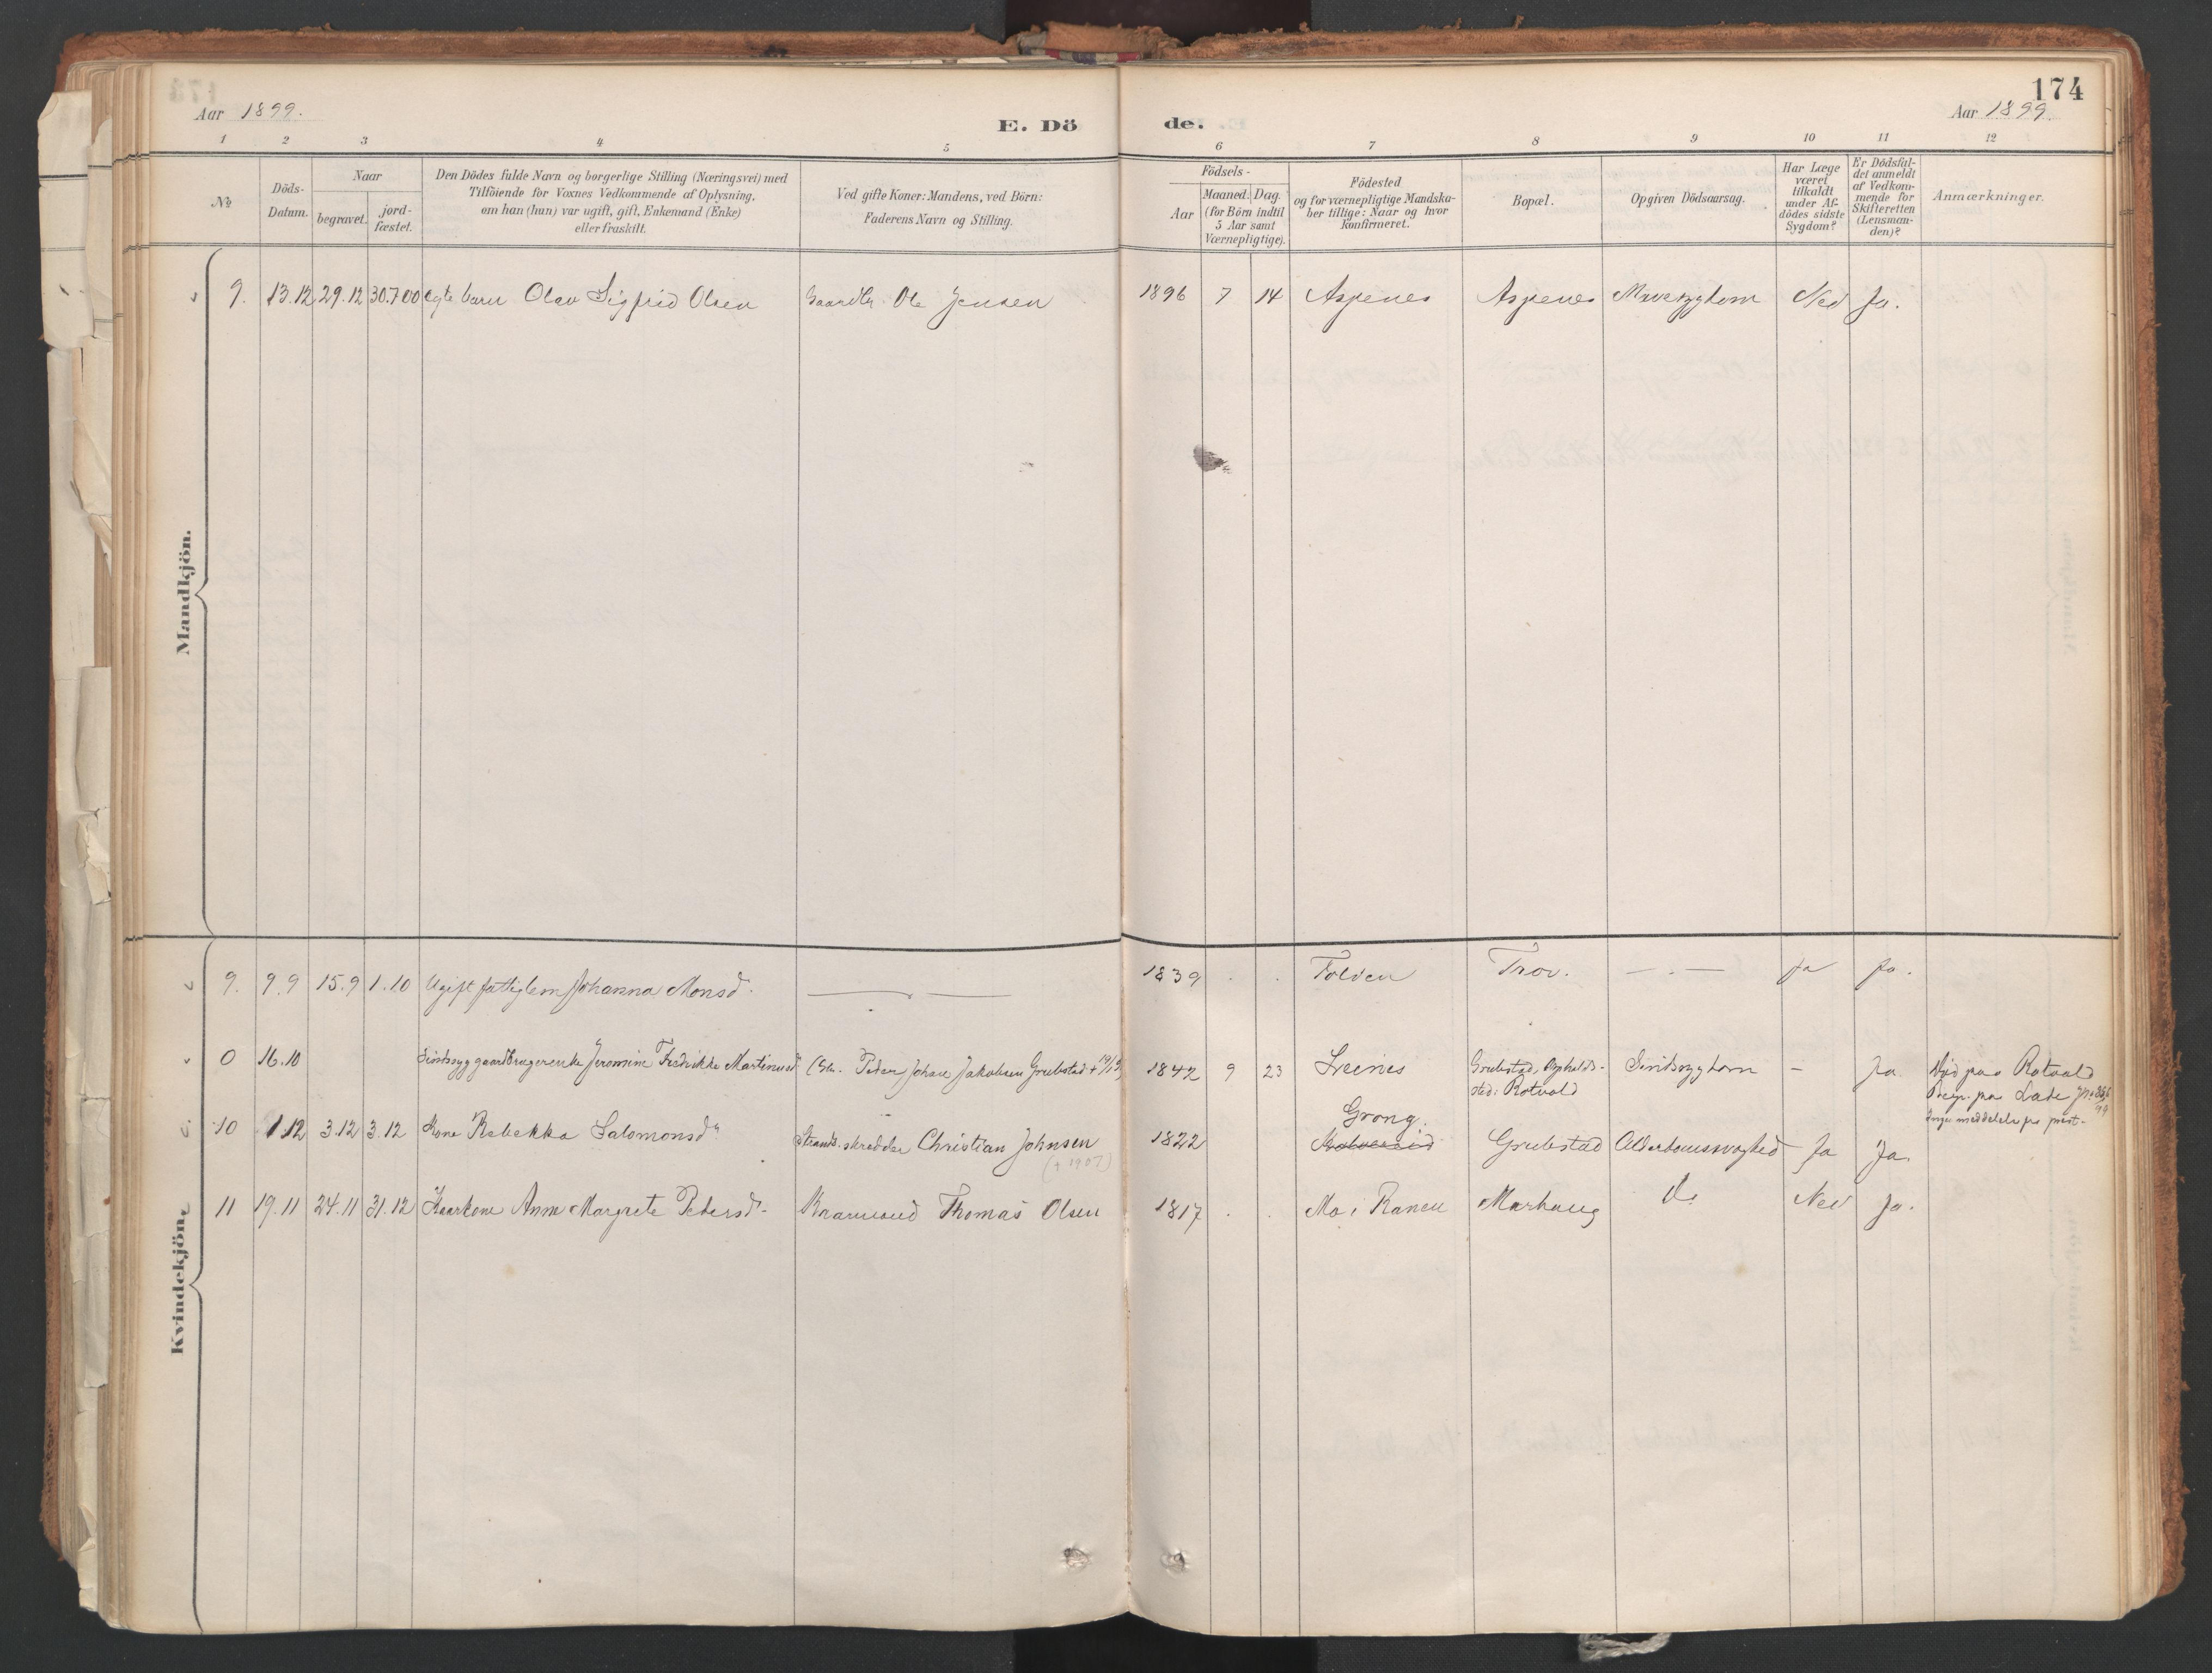 174
Aar 1899.
E. Dö
de.
Aar 1899.
1 2 3 4 5 6 7 8 9 10 11 12
№
Döds-
Datum.
Naar
begravet.
jord-
fæstet.
Den Dödes fulde Navn og borgerlige Stilling (Næringsvei) med
Tilföiende for Voxnes Vedkommende af Oplysning,
om han (hun) var ugift, gift, Enkemand (Enke)
eller fraskilt.
Ved gifte Koner: Mandens, ved Börn:
Faderens Navn og Stilling.
Födsels-
Aar
Maaned. Dag.
(for Börn indtil
5 Aar samt
Værnepligtige).
Födested
og for værnepligtige Mandska-
ber tillige: Naar og hvor
konfirmeret.
Bopæl.
Opgiven Dödsaarsag.
Har Læge
været
tilkaldt
under Af-
dödes sidste
Sygdom?
Er Dödsfal-
det anmeldt
af Vedkom-
mende for
Skifteretten
(Lensman-
den)?
Anmærkninger.
Mandkjön.
9. 13.12 29.12 30.7 00 ægte barn Olav Sigfrid Olsen Gaardbr. Ole Jensen 1896 7 14 Aspenes Aspenes Mavesygdom Nei Ja.
Kvindekjön.
9. 9.9 15.9 1.10 Ugift fattiglem Johanna Monsd. — . — 1839 . . Folden Trov. — . — Ja Ja.
0 16.10 Sindssyg gaardbrugerenke Jeromine Fredrikke Martinusd. (Gbr. Peder Johan Jakobsen Grubstad + 1842 9 23 Leines Grubstad, Opholds-
sted: Rotvold Sindssygdom – Ja. Död paa Rotvold
Begr. paa Lade
Ingen meddelelse fra prest-
10 1.12 3.12 3.12 Kone Rebekka Salomonsdr. Strands. skredder Christian Johnsen 1822 Grong. Kolvereid Grubstad Alderdomssvaghed Ja Ja.
(+ 1907)
11 19.11 24.11 31.12 Kaarkone Anne Margrete Petersd. Kaarmand Thomas Olsen 1817 . . Mo i Ranen Marhaug do Nei Ja.